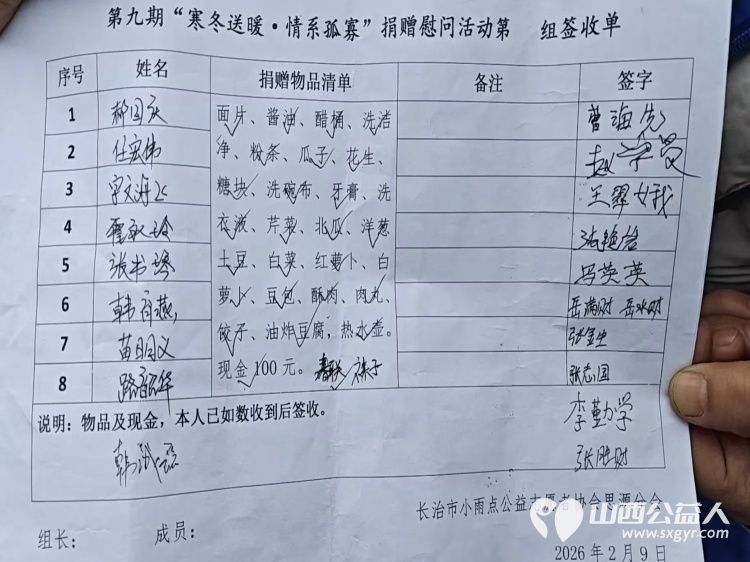 第九期“寒冬送暖·情系孤寡”捐赠慰问活动第 组签收单
序号 姓名 捐赠物品清单 备注 签字
1 郝国庆 面片、酱油、醋桶、洗洁 曹海先
2 任宏伟 净、粉条、瓜子、花生、
3 糖块、洗碗布、牙膏、洗 王翠女我
4 衣液、芹菜、北瓜、洋葱
5 张书珍 土豆、白菜、红萝卜、白 冯英英
6 萝卜、豆包、酥肉、肉丸、 岳满财 岳水财
7 苗日义 饺子、油炸豆腐,热水壶。 张金虫
8 现金100元。 袜子 张志国
李勤学
说明:物品及现金,本人已如数收到后签收。
张胜财
长治市小雨点公益志愿者协会思源分会
组长: 成员:
2026年2月9日
山西公益人
www.sxgyr.com